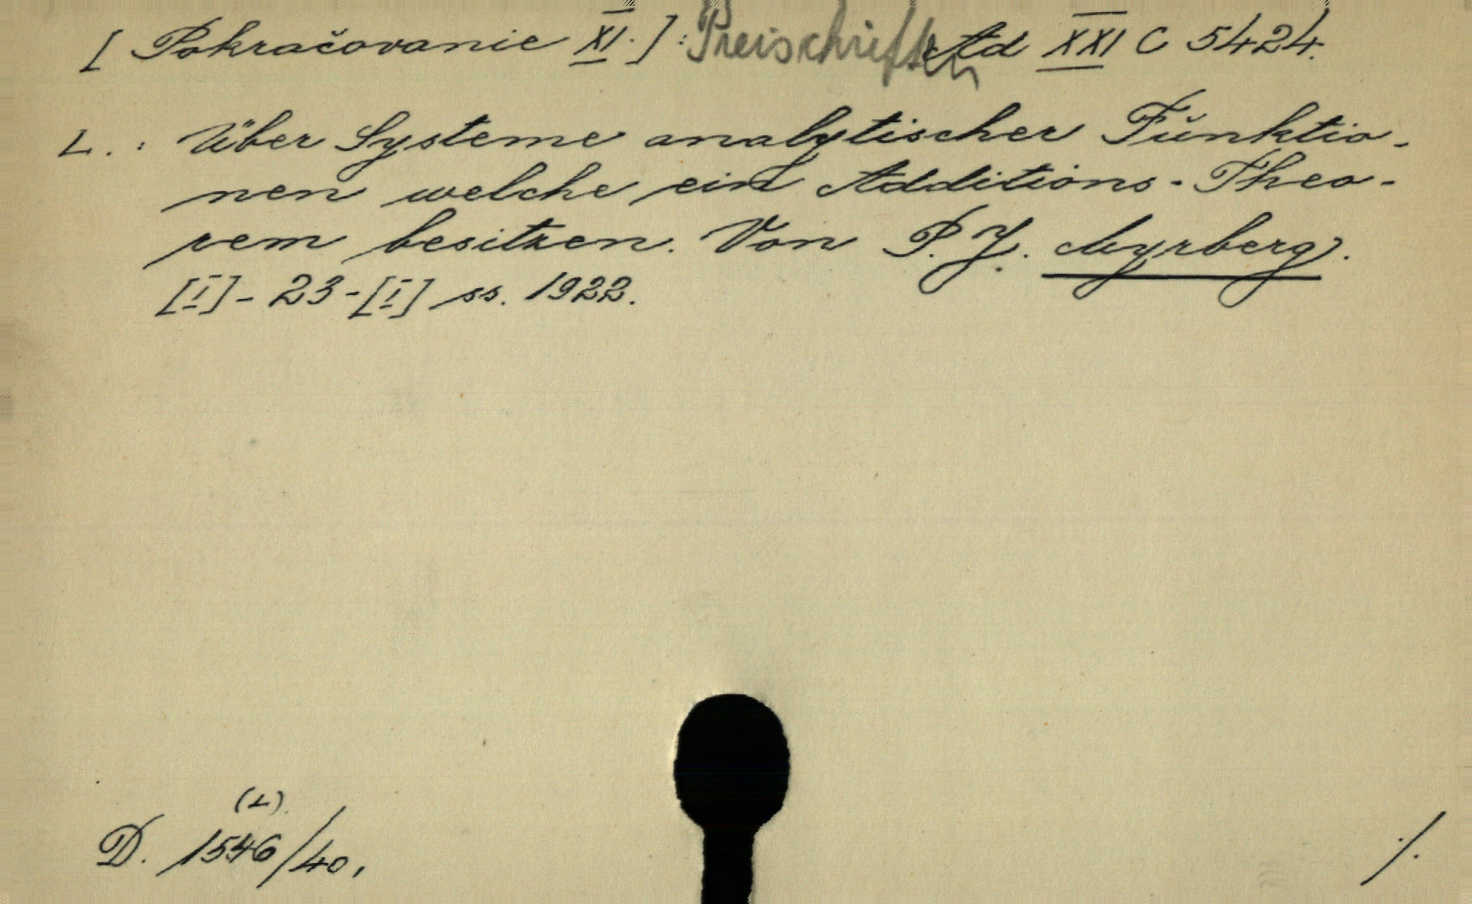 [Pokračovanie XI.]: Preischriften Ad XXI C 5424.
L.: Über Systeme analytischer Funktio-
nen welche ein Additions-Theo-
rem besitzen. Von P. J. Myrberg.
[I]-23-[I] ss. 1922.
(L).
D. 1546/40,
./.